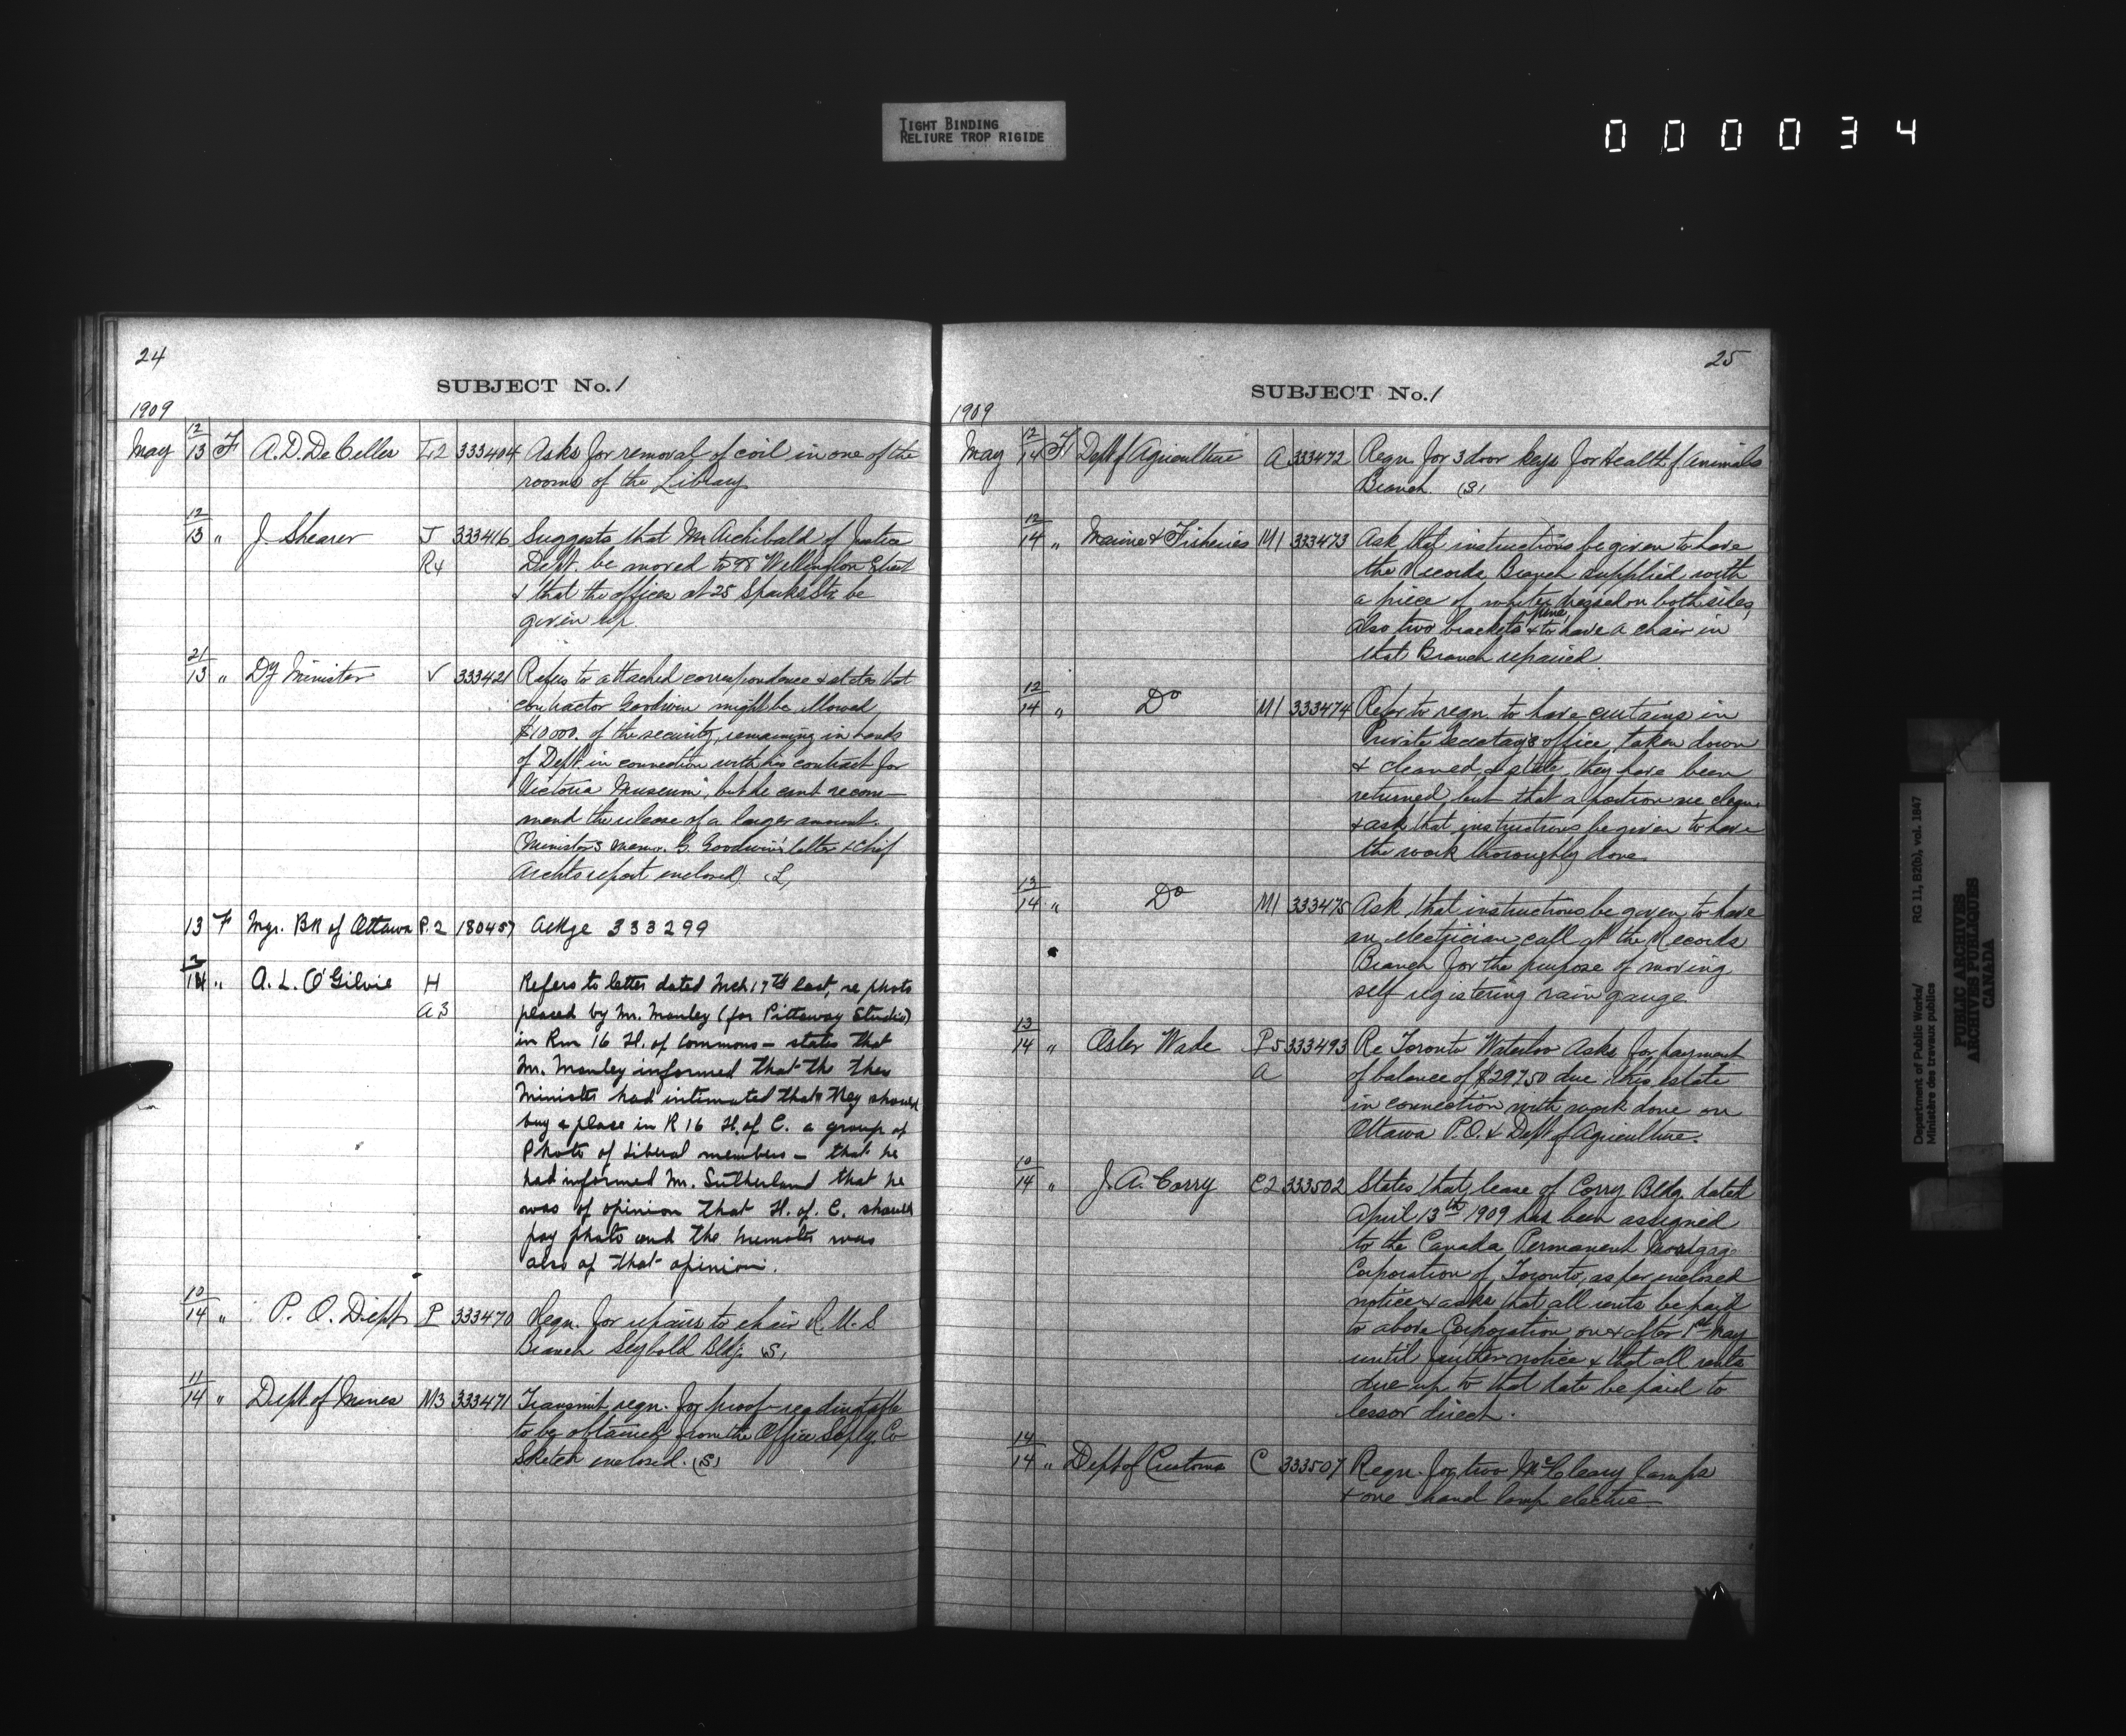 TIGHT BINDING
RELIURE TROP RIGIDE
000034
24
SUBJECT No. 1
1909
May 12/13 F A. D. De Celles L2 333404 Asks for removal of coil in one of the
rooms of the Library
12/13 " J Shearer J 333416 Suggests that Mr Archibald of Justice
R4 Dept. be moved to 98 Wellington Street
& that the offices at 25 Sparks St. be
given up.
21/13 " Dy Minister V 333421 Refers to attached correspondence & states that
contractor Goodwin might be allowed
$10000. of the security, remaining in hands
of Dept. in connection with his contract for
Victoria Museum, but he cant recom-
mend the release of a larger amount.
(Ministers memo. G. Goodwin's letter & Chief
Archts report enclosed) (L)
13 F Mgr. Bk of Ottawa P.2 180457 Ackge 333299
14 " A. L. O'Gilvie H Refers to letter dated Mch 17th last, re photo
A3 placed by Mr. Manley (for Pittaway Studio)
in Rm 16 H. of Commons - states that
Mr. Manley informed that the then
Minister had intimated that they should
buy & place in R 16 H. of C. a group of
Photo of Liberal members - that he
had informed Mr. Sutherland that he
was of opinion that H. of C. should
pay photo and the Minister was
also of that opinion.
10/14 " P. O. Dept P 333470 Reqn. for repairs to chair R. M. S.
Branch Seybold Bldg. (S)
11/14 " Dept of Mines M3 333471 Transmit reqn. for proof-reading table
to be obtained from the Office Splty. Co
Sketch enclosed. (S)
25
SUBJECT No. 1
1909
May 12/14 F Dept of Agriculture A 333472 Reqn. for 3 door keys for Health of Animals
Branch. (S)
12/14 " Marine & Fisheries M1 333473 Ask that instructions be given to have
the Records Branch supplied with
a piece of white pine dressed on both sides,
also two brackets & to have a chair in
that Branch repaired.
12/14 " Do M1 333474 Refer to reqn. to have curtains in
Private Secretary's office, taken down
& cleaned, & state they have been
returned, but that a portion are
& ask that instructions be given to have
the work thoroughly done.
13/14 " Do M1 333475 Ask that instructions be given to have
an electrician call at the Records
Branch for the purpose of moving
self registering rain gauge
13/14 " Osler Wade P5 333493 Re Toronto Waterloo Asks for payment
A of balance of $297.50 due this estate
in connection with work done on
Ottawa P.O. & Dept of Agriculture.
10/14 " J. A. Corry C2 333502 States that lease of Corry Bldg. dated
April 13th 1909 has been assigned
to the Canada Permanent Mortgage
Corporation of Toronto, as per enclosed
notice & asks that all rents be paid
to above Corporation on & after 1st May
until further notice & that all rents
due up to that date be paid to
lessor direct.
14/14 " Dept of Customs C 333507 Reqn. for two McCleary lamps
& one hand lamp electric
Department of Public Works/ RG 11, B2(b), vol. 1847
Ministère des travaux publics
PUBLIC ARCHIVES
ARCHIVES PUBLIQUES
CANADA